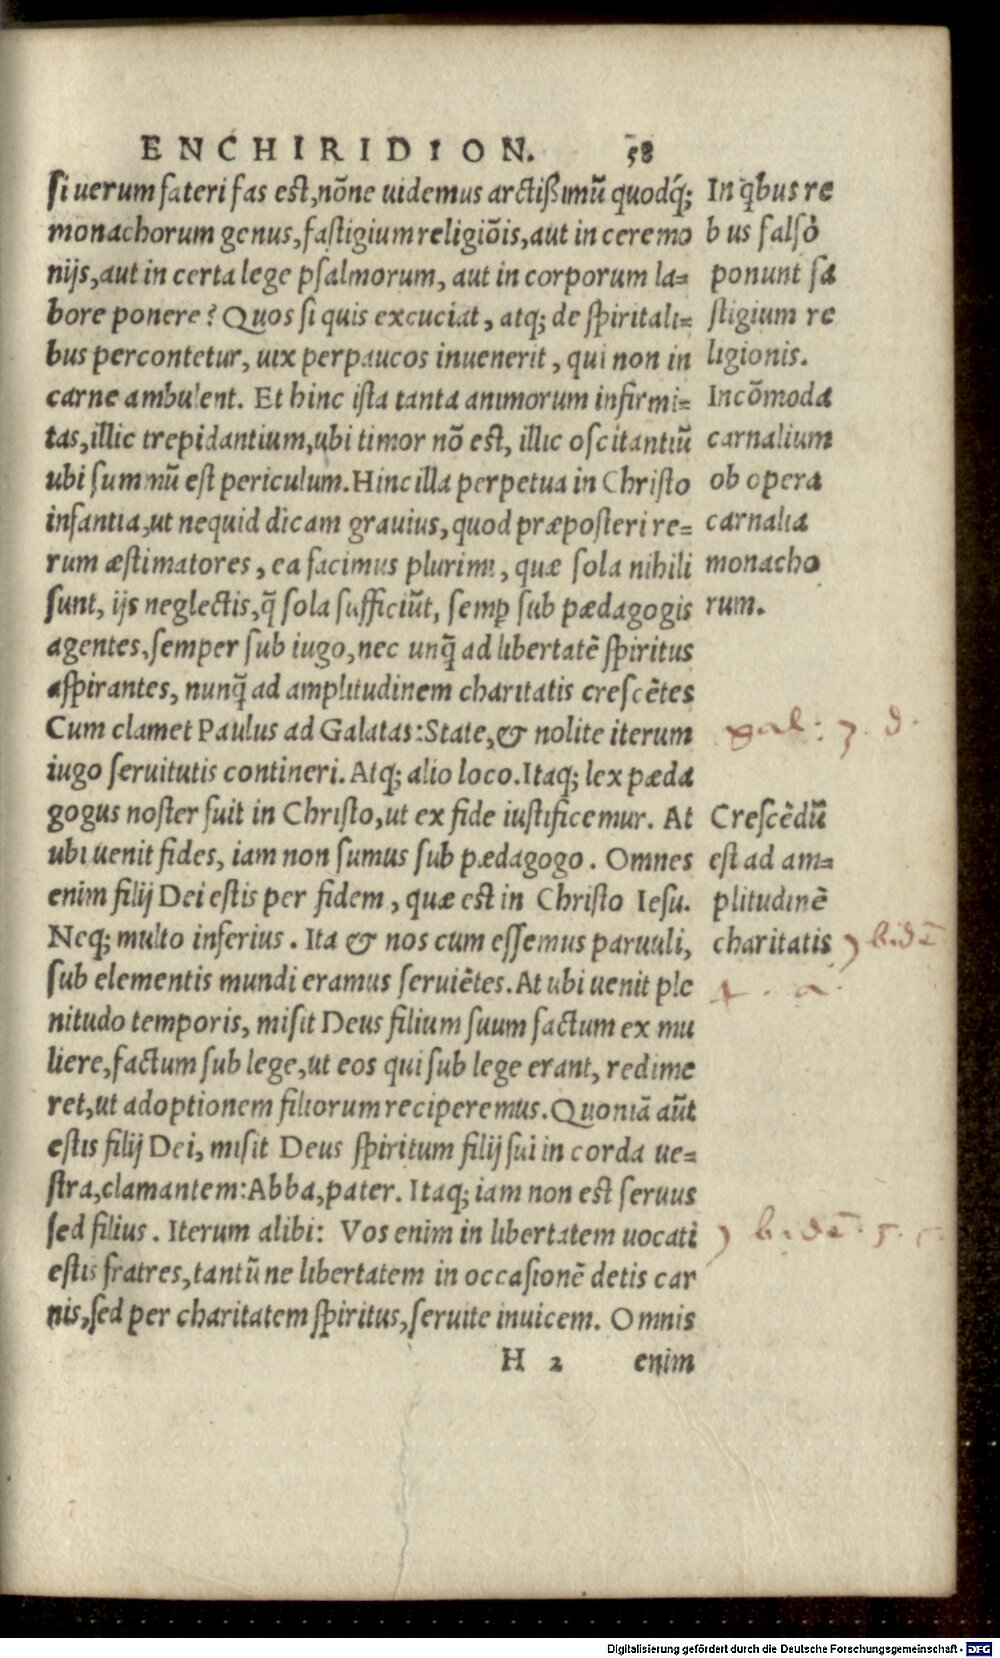 ENCHIRIDION. 58
si uerum fateri fas est, nōne uidemus arctißimū quodq́;
monachorum genus, fastigium religiōis, aut in ceremo
nijs, aut in certa lege psalmorum, aut in corporum la=
bore ponere? Quos si quis excuciat, atq; de spiritali=
bus percontetur, uix perpaucos inuenerit, qui non in
carne ambulent. Et hinc ista tanta animorum infirmi=
tas, illic trepidantium, ubi timor nō est, illic oscitantiū
ubi summū est periculum. Hinc illa perpetua in Christo
infantia, ut nequid dicam grauius, quod præposteri re=
rum æstimatores, ea facimus plurimi, quæ sola nihili
sunt, ijs neglectis, q̄ sola sufficiūt, semꝑ sub pædagogis
agentes, semper sub iugo, nec unq̄ ad libertatē spiritus
aspirantes, nunq̄ ad amplitudinem charitatis crescētes
Cum clamet Paulus ad Galatas: State, & nolite iterum
iugo seruitutis contineri. Atq; alio loco. Itaq; lex pæda
gogus noster fuit in Christo, ut ex fide iustificemur. At
ubi uenit fides, iam non sumus sub pædagogo. Omnes
enim filij Dei estis per fidem, quæ est in Christo Iesu.
Neq; multo inferius. Ita & nos cum essemus paruuli,
sub elementis mundi eramus seruiētes. At ubi uenit ple
nitudo temporis, misit Deus filium suum factum ex mu
liere, factum sub lege, ut eos qui sub lege erant, redime
ret, ut adoptionem filiorum reciperemus. Quoniā aūt
estis filij Dei, misit Deus spiritum filij sui in corda ue=
stra, clamantem: Abba, pater. Itaq; iam non est seruus
sed filius. Iterum alibi: Vos enim in libertatem uocati
estis fratres, tantū ne libertatem in occasionē detis car
nis, sed per charitatem spiritus, seruite inuicem. Omnis
H 2 enim
In qbus re
bus falsò
ponunt fa
stigium re
ligionis.
Incōmoda
carnalium
ob opera
carnalia
monacho
rum.
gal: 3. d.
Crescēdū
est ad am=
plitudinē
charitatis
4. a.